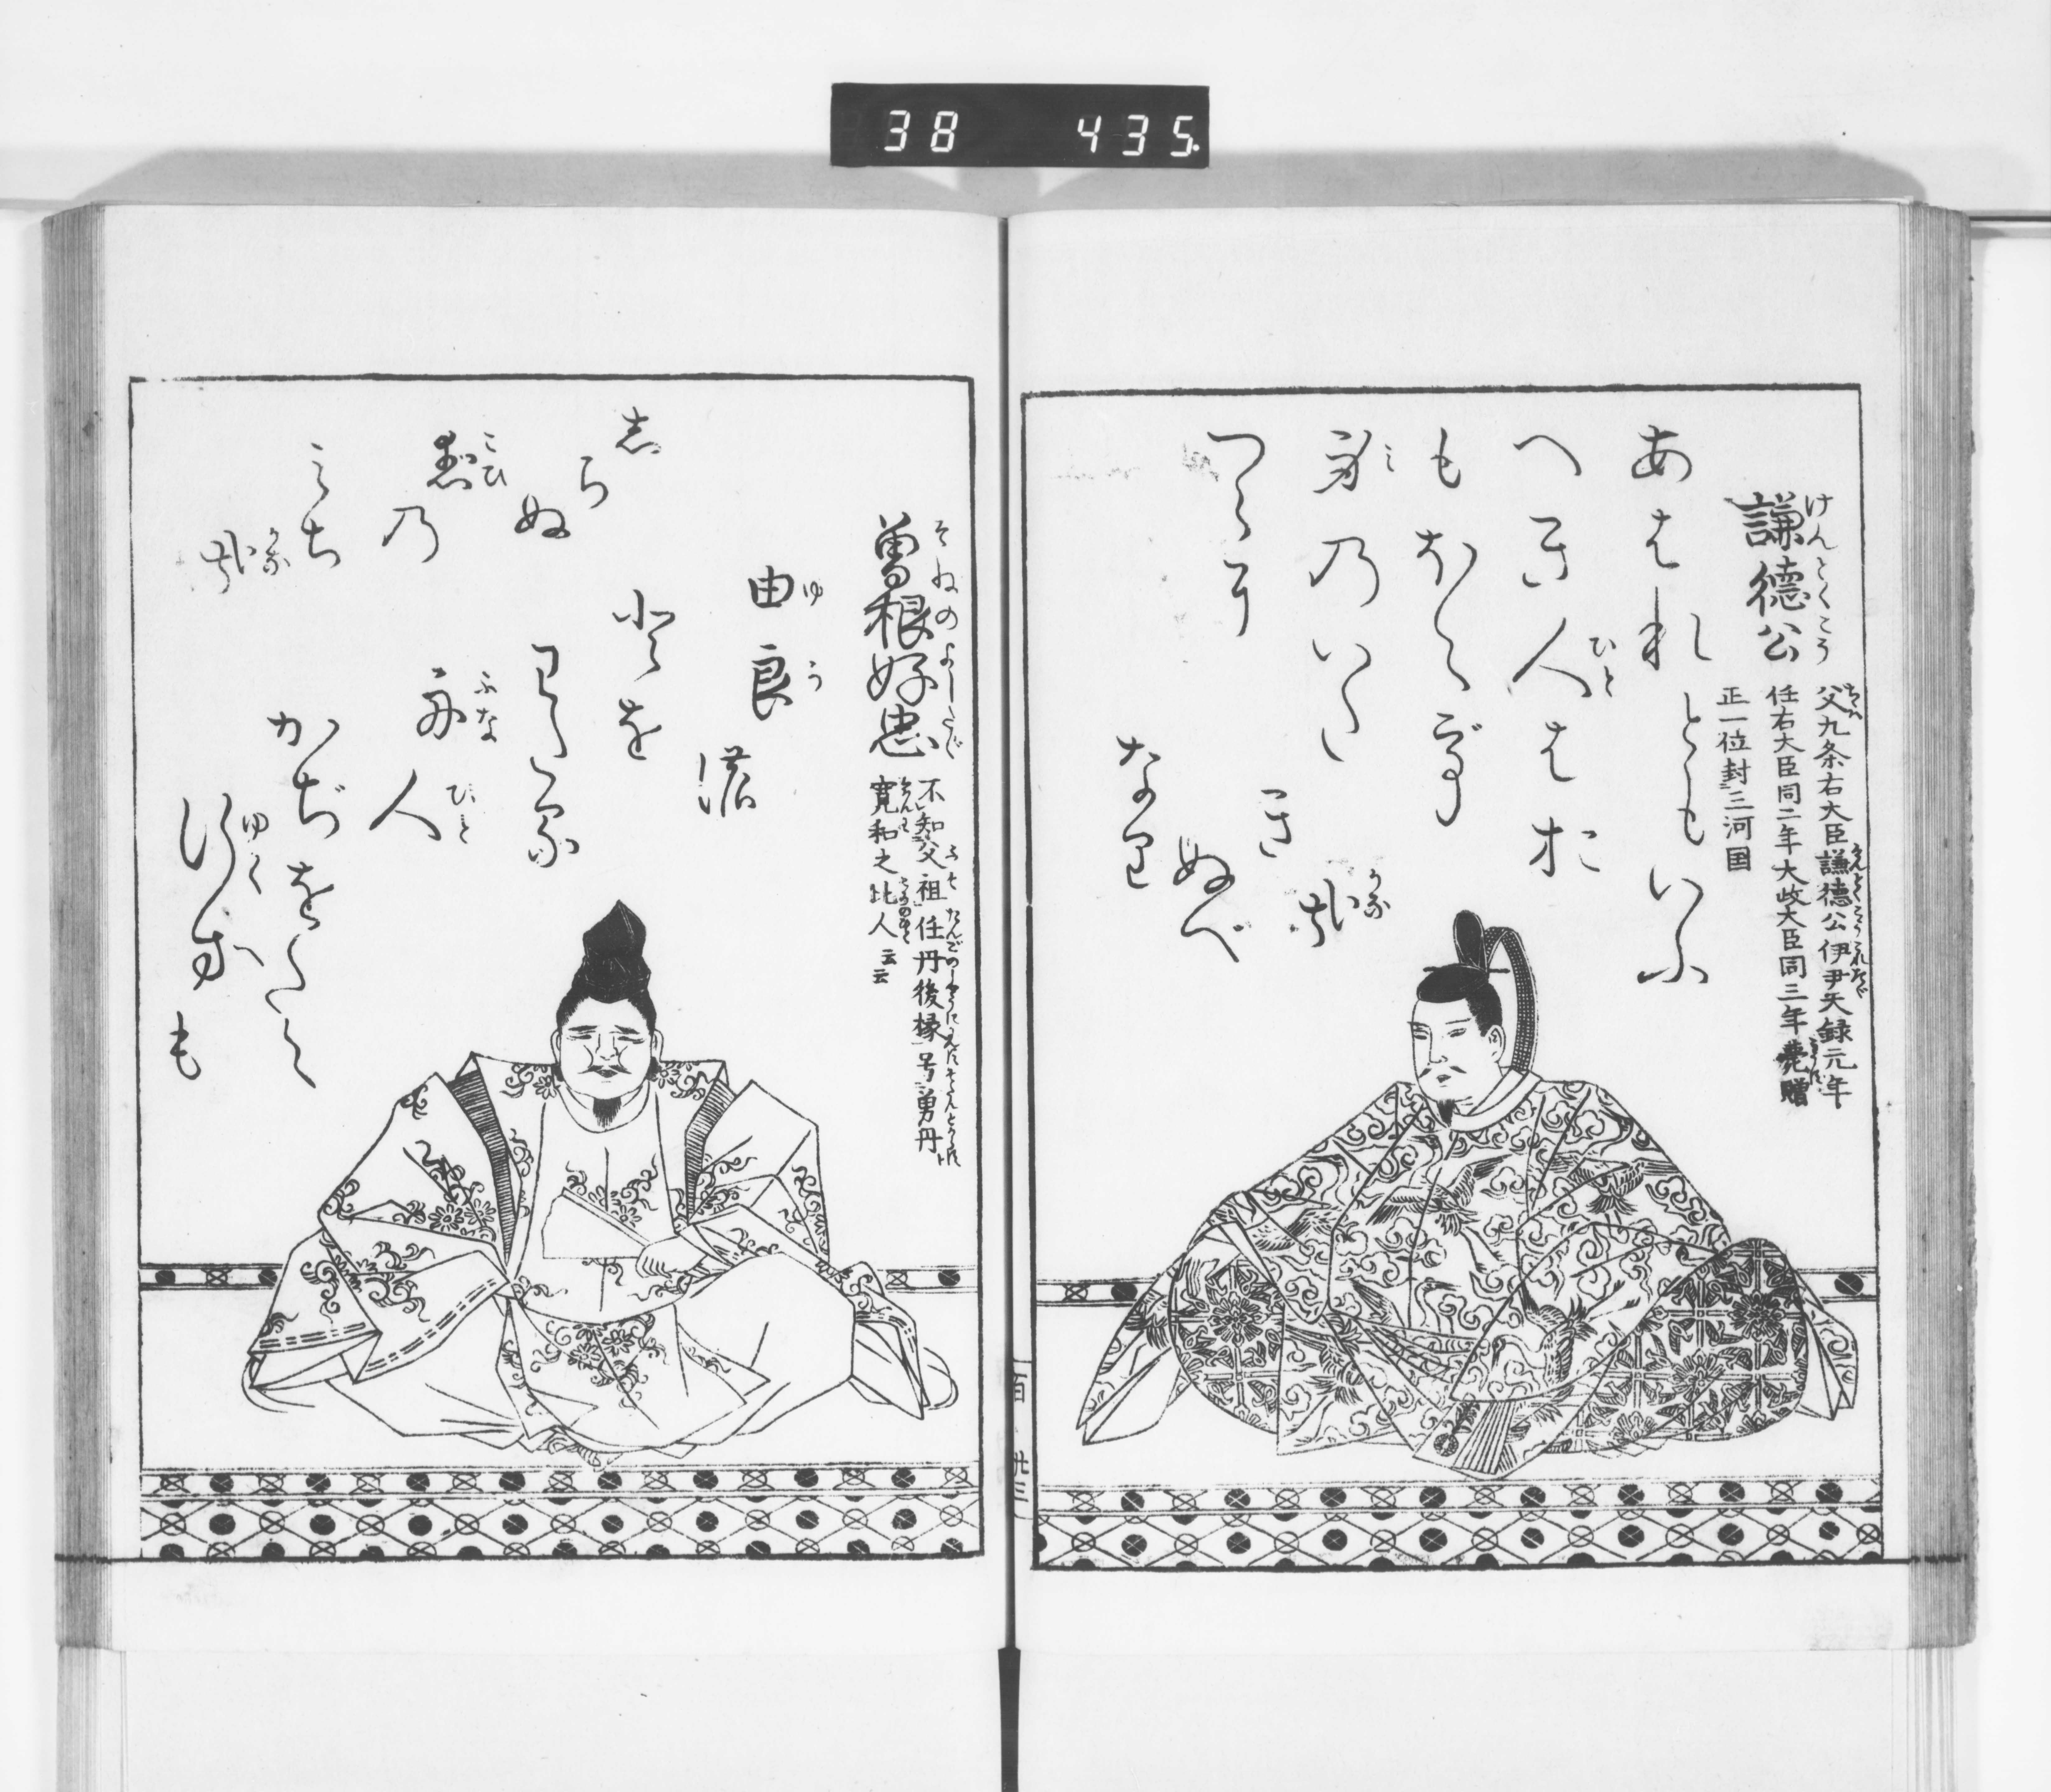 38 435
謙徳公
けんとくこう
父九条右大臣謙徳公伊尹天録元年
任右大臣同二年大政大臣同三年薨贈
正一位封三河国
あはれともいふ
へき人はお
もほえず
身のいた
つらに
なりぬべ
き哉
曽根好忠
そねのよしたゞ
不知父祖任丹後掾号曽丹
寛和之比人云云
由良の
とを
わたる
舟人
かぢをたえ
行衛も
しらぬ
恋の
みち
哉
一百 廿三